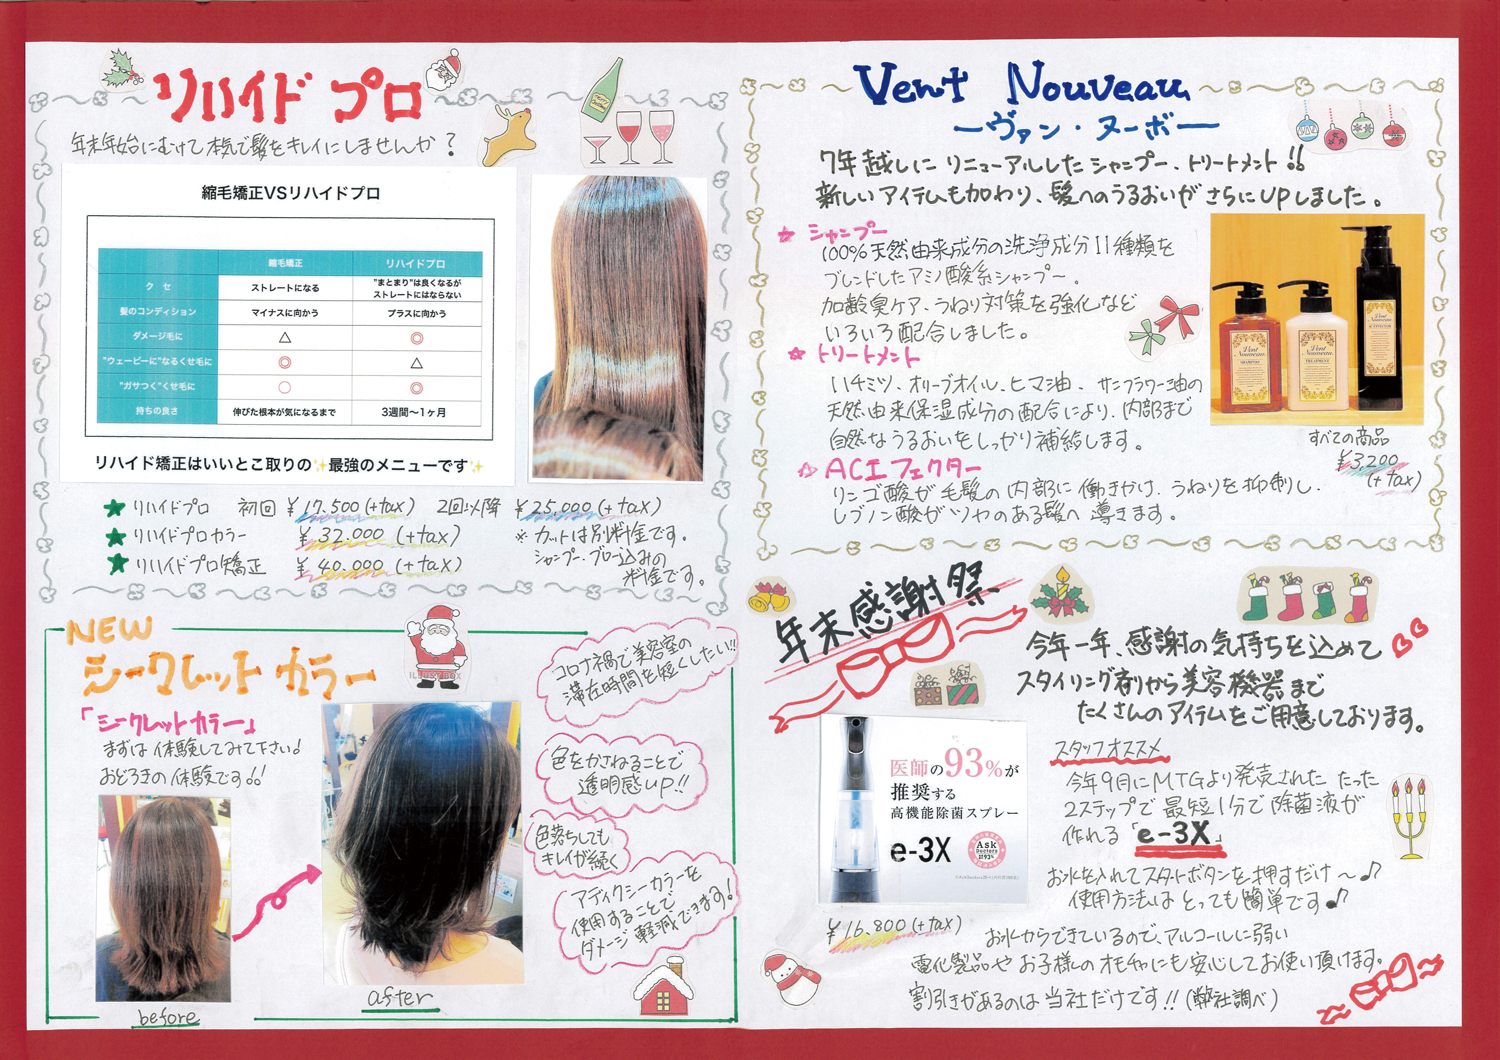 リハイド プロ
年末年始にむけて本気で髪をキレイにしませんか？
縮毛矯正VSリハイドプロ
縮毛矯正 リハイドプロ
ク セ ストレートになる "まとまり"は良くなるが
ストレートにはならない
髪のコンディション マイナスに向かう プラスに向かう
ダメージ毛に △ ◎
"ウェービーに"なるくせ毛に ◎ △
"ガサつく"くせ毛に ○ ◎
持ちの良さ 伸びた根本が気になるまで 3週間〜1ヶ月
リハイド矯正はいいとこ取りの✨最強のメニューです✨
★ リハイドプロ 初回 ¥17.500(+tax) 2回以降 ¥25.000(+tax)
★ リハイドプロカラー ¥32.000 (+tax)
★ リハイドプロ矯正 ¥40.000 (+tax)
※ カットは別料金です。
シャンプー、ブロー込みの
料金です。
NEW
シークレット カラー
「シークレットカラー」
まずは体験してみて下さい！
おどろきの体験です！！
before
after
コロナ禍で美容室の
滞在時間を短くしたい!!
色をかさねることで
透明感UP!!
色落ちしても
キレイが続く
アディクシーカラーを
使用することで
ダメージ軽減できます！
Vent Nouveau
ーヴァン・ヌーボー
7年越しにリニューアルしたシャンプー、トリートメント!!
新しいアイテムも加わり、髪へのうるおいがさらにUPしました。
☆ シャンプー
100%天然由来成分の洗浄成分11種類を
ブレンドしたアミノ酸系シャンプー
加齢臭ケア、うねり対策を強化など
いろいろ配合しました。
☆ トリートメント
ハチミツ、オリーブオイル、ヒマ油、サンフラワー油の
天然由来保湿成分の配合により、内部まで
自然なうるおいをしっかり補給します。
☆ ACエフェクター
リンゴ酸が毛髪の内部に働きかけ、うねりを抑制し、
レブノン酸がツヤのある髪へ導きます。
Vent
Nouveau
SHAMPOO
Vent
Nouveau
TREATMENT
すべての商品
¥3,200
(+tax)
年末感謝祭
今年一年、感謝の気持ちを込めて
スタイリング剤から美容機器まで
たくさんのアイテムをご用意しております。
医師の93%が
推奨する
高機能除菌スプレー
e-3X
Ask
Doctors
医師の93%
¥16.800(+tax)
スタッフオススメ
今年9月にMTGより発売された たった
2ステップで最短1分で除菌液が
作れる「e-3X」
お水を入れてスタートボタンを押すだけ〜♪
使用方法はとっても簡単です♪
お水からできているので、アルコールに弱い
電化製品やお子様のオモチャにも安心してお使い頂けます。
割引きがあるのは当社だけです!!(弊社調べ)